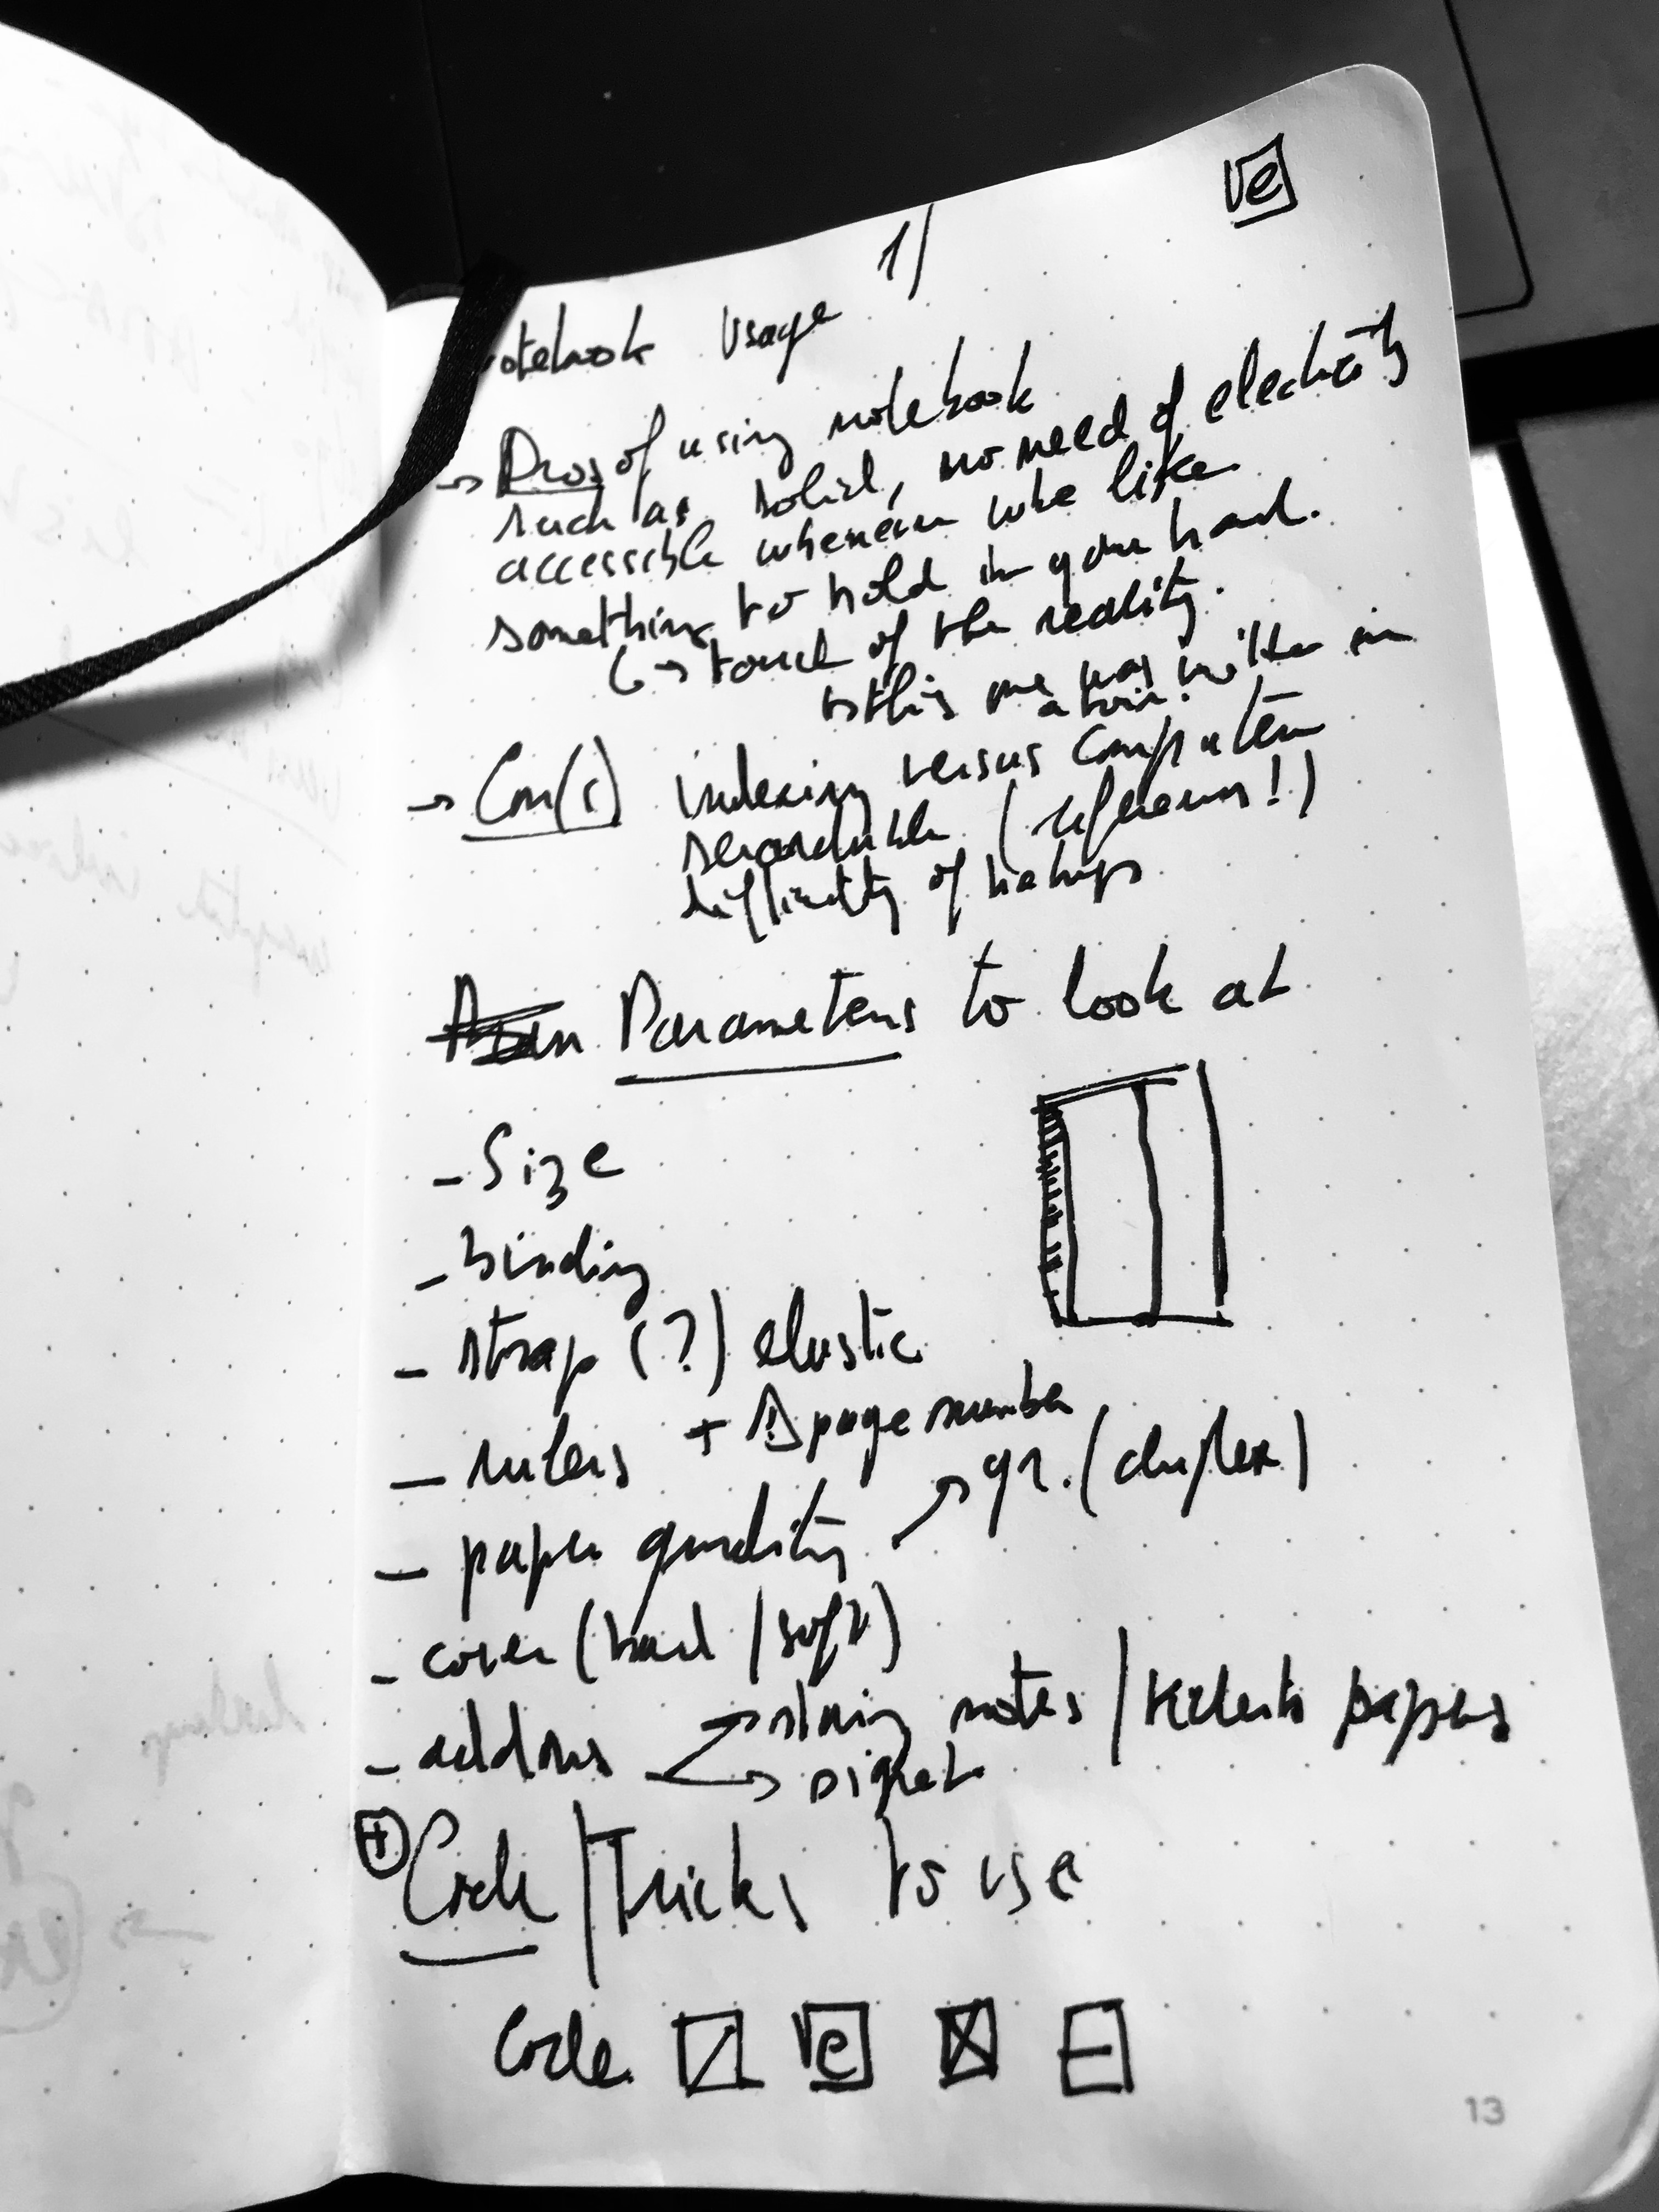 e
1/
Notebook Usage
→ Pros of using notebook
such as solid, no need of electricity
accessible whenever
something to hold in your hand.
↳ touch of the reality.
↳ this one was written in
a train.
→ Con(s) indexing versus computer
searchable (references!)
difficulty of backups
Parameters to look at
- Size
- binding
- strap (?) elastic
- rulers + page number
- paper quality → gr. (duplex)
- cover (hard / soft)
- addons → notes / papers
→ signet
+ Code / Tricks to use
Code e
13